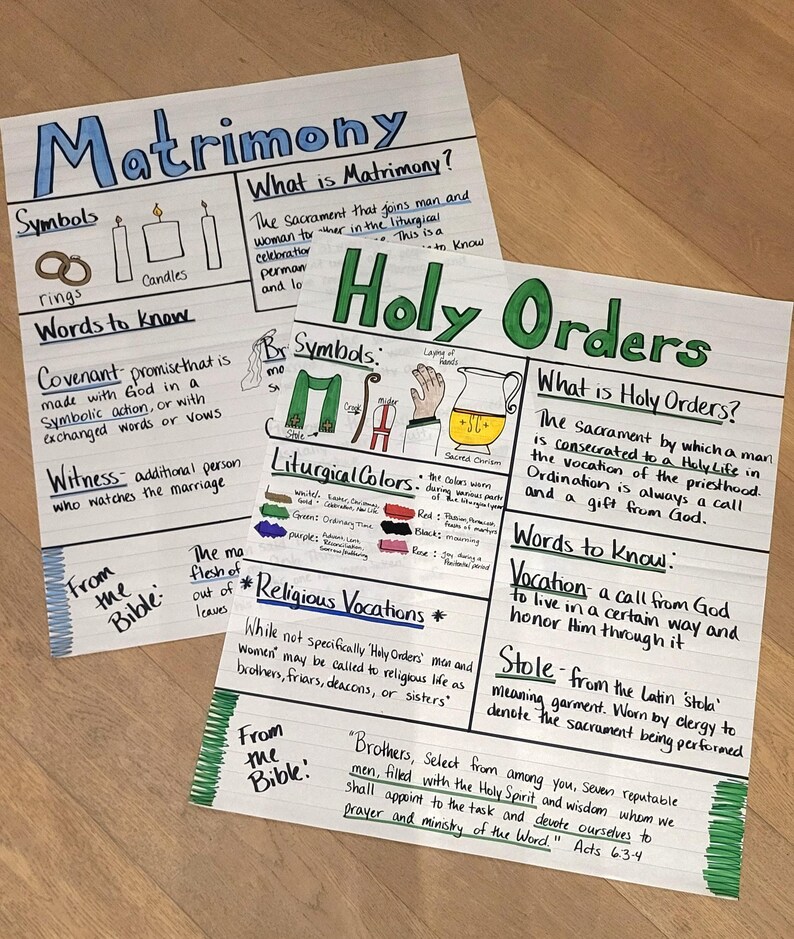 Matrimony
Symbols
rings
Candles
What is Matrimony?
The Sacrament that joins man and
woman
in the liturgical
celebration
This is a
perman
to know
and lo
Words to know
Covenant - promise that is
made with God in a
Symbolic action, or with
exchanged words or vows
Witness - additional person
who watches the marriage
From
the
Bible:
The ma
flesh of
out of
leaves
Holy Orders
Symbols:
Stole
Crook
mider
Laying of
hands
+SC+
Sacred Chrism
What is Holy Orders?
The Sacrament by which a man
is consecrated to a Holy Life in
the vocation of the priesthood.
Ordination is always a call
and a gift from God.
Liturgical Colors: the colors worn
during various parts
of the liturgical year
White/Gold: Easter, Christmas,
Celebration, New Life
Green: Ordinary Time
purple: Advent, Lent,
Reconciliation,
Sorrow/Suffering
Red: Passion, Pentecost,
feasts of martyrs
Black: mourning
Rose: Joy during a
Penitential period
Words to Know:
Vocation - a call from God
to live in a certain way and
honor Him through it
Stole - from the Latin 'stola'
meaning garment. Worn by clergy to
denote the sacrament being performed
*Religious Vocations*
While not specifically 'Holy Orders' men and
women* may be called to religious life as
brothers, friars, deacons, or sisters*
From
the
Bible:
"Brothers, Select from among you, seven reputable
men, filled with the Holy Spirit and wisdom whom we
shall appoint to the task and devote ourselves to
prayer and ministry of the Word." Acts 6:3-4